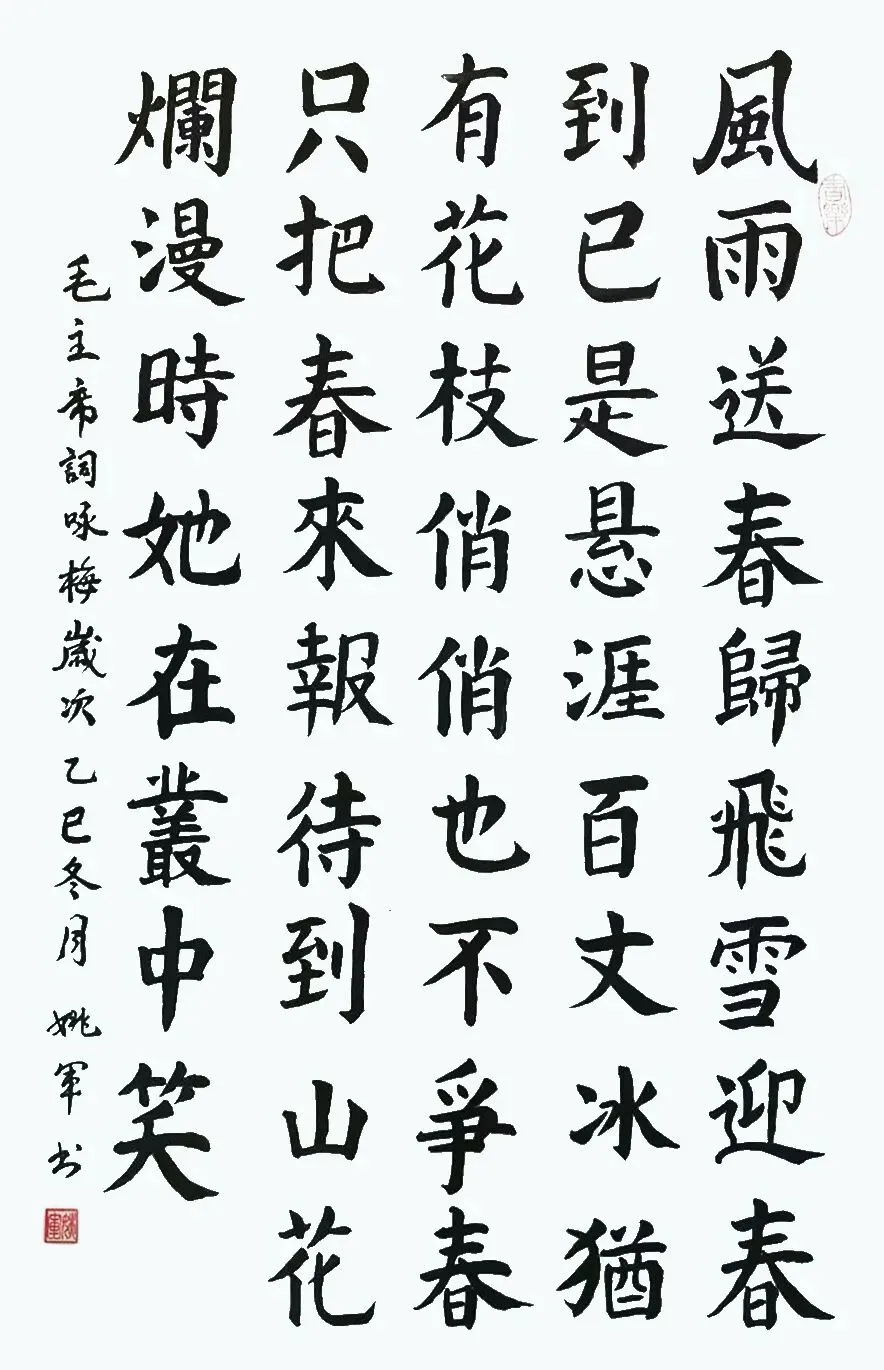 風雨送春歸飛雪迎春
到已是悬涯百丈冰猶
有花枝俏俏也不爭春
只把春來報待到山花
爛漫時她在叢中笑
毛主席詞咏梅歲次乙巳冬月 姚軍书